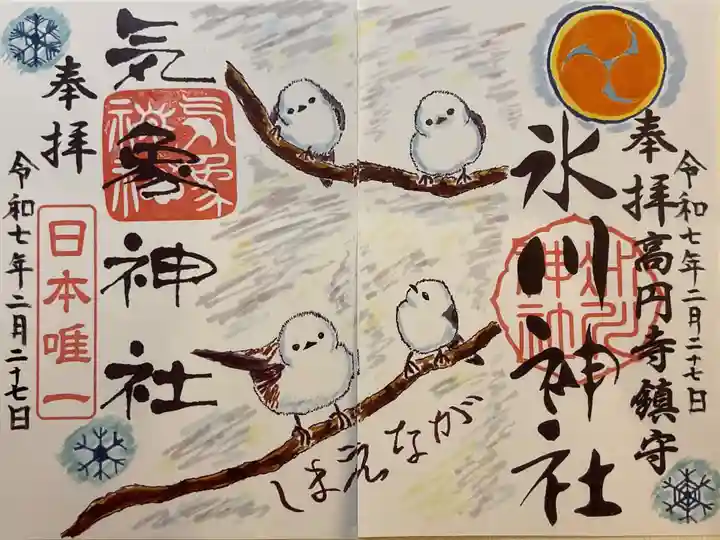 令和七年二月二十七日
奉拝 高円寺鎮守
氷川神社
氷川神社
しまえなが
気象神社
気象神社
奉拝
日本唯一
令和七年二月二十七日